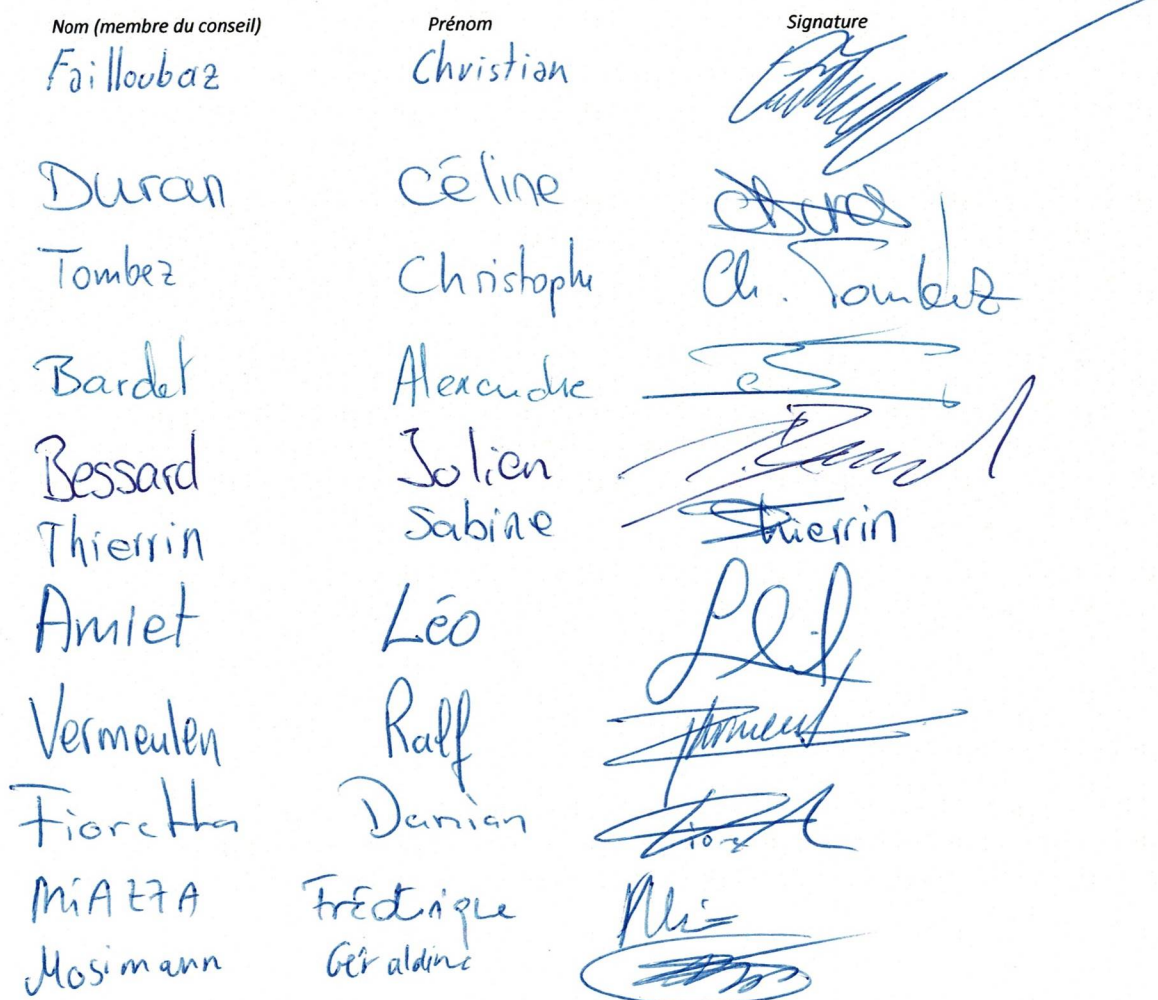 Nom (membre du conseil) Prénom Signature
Failloubaz Christian
Duran Céline
Tombez Christophe Ch. Tombez
Bardet Alexandre
Bessard Julien
Thierrin Sabine SThierrin
Amiet Léo
Vermeulen Ralf
Fioretta Damian
MiAZZA Frédérique
Mosimann Géraldine